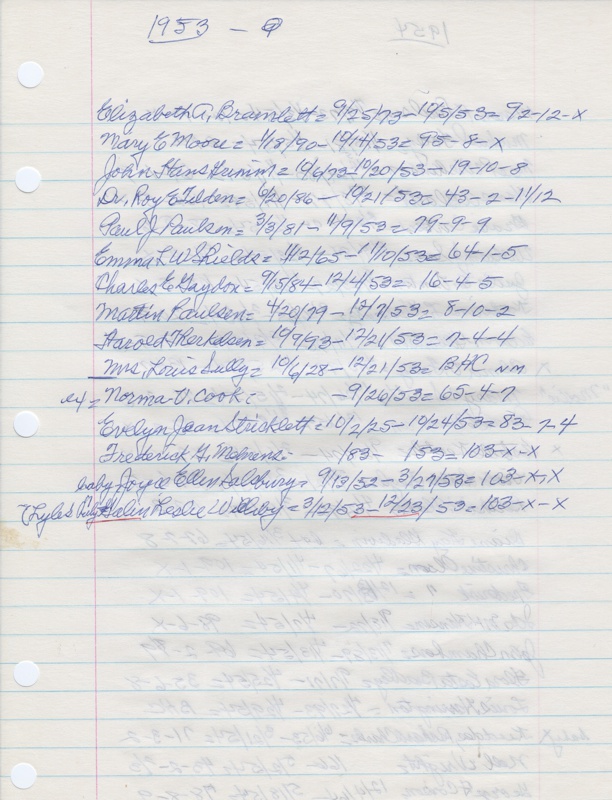 1953 -
Elizabeth A. Bramlett = 9/25/73 - 10/5/53 = 92-12-X
Mary E Moore = 1/18/90 - 10/14/53 = 95-8-X
John Hans = 10/6/73 - 10/20/53 - 19-10-8
Dr. Roy E Tilden = 6/20/86 - 10/21/53 = 43-2-11/12
Paul J. Paulsen = 3/3/81 - 11/9/53 = 79-9-9
Emma L W Shields = 1/12/65 - 11/10/53 = 64-1-5
Charles E Gaydox = 9/15/84 - 12/4/53 = 16-4-5
Mattin Paulsen = 4/20/79 - 12/7/53 = 8-10-2
Harold Therkelsen = 10/9/93 - 12/21/53 = 7-4-4
Mrs, Louis Sully = 10/6/28 - 12/21/53 = BAC NM
ex = Norma V. Cook = - 9/26/53 = 65-4-7
Evelyn Jean Stricklett = 10/2/25 - 10/24/53 = 83-7-4
Frederick G. = - /83 - /53 = 103-X-X
baby Joyce Ellen Salsbury = 9/13/52 - 3/27/53 = 103-X-X
Leslie = 3/12/53 - 12/23/53 = 103-X-X